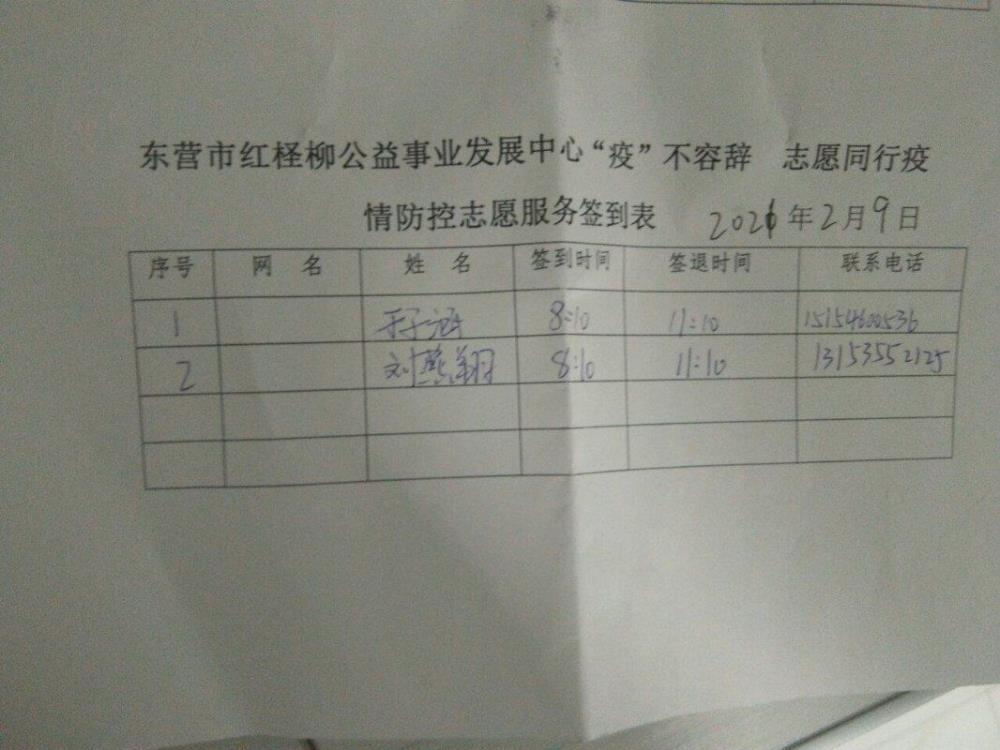 东营市红柽柳公益事业发展中心“疫”不容辞 志愿同行疫
情防控志愿服务签到表 2021年2月9日
序号 网 名 姓 名 签到时间 签退时间 联系电话
1 于子涵 8:10 11:10 15154600536
2 刘燕翔 8:10 11:10 13153552125